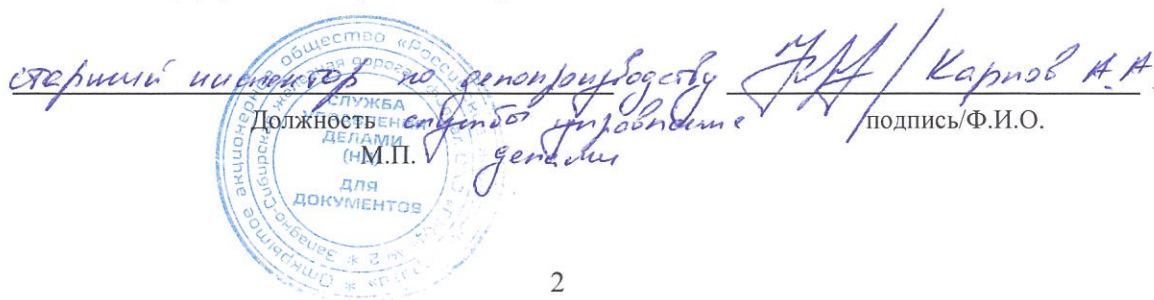 старший инспектор по делопроизводству / Карпов А.А.
Должность службы управление подпись/Ф.И.О.
М.П. делами
Открытое акционерное общество «Российские
Западно-Сибирская железная дорога
№ 2
СЛУЖБА
УПРАВЛЕНИЯ
ДЕЛАМИ
(НД)
ДЛЯ
ДОКУМЕНТОВ
2